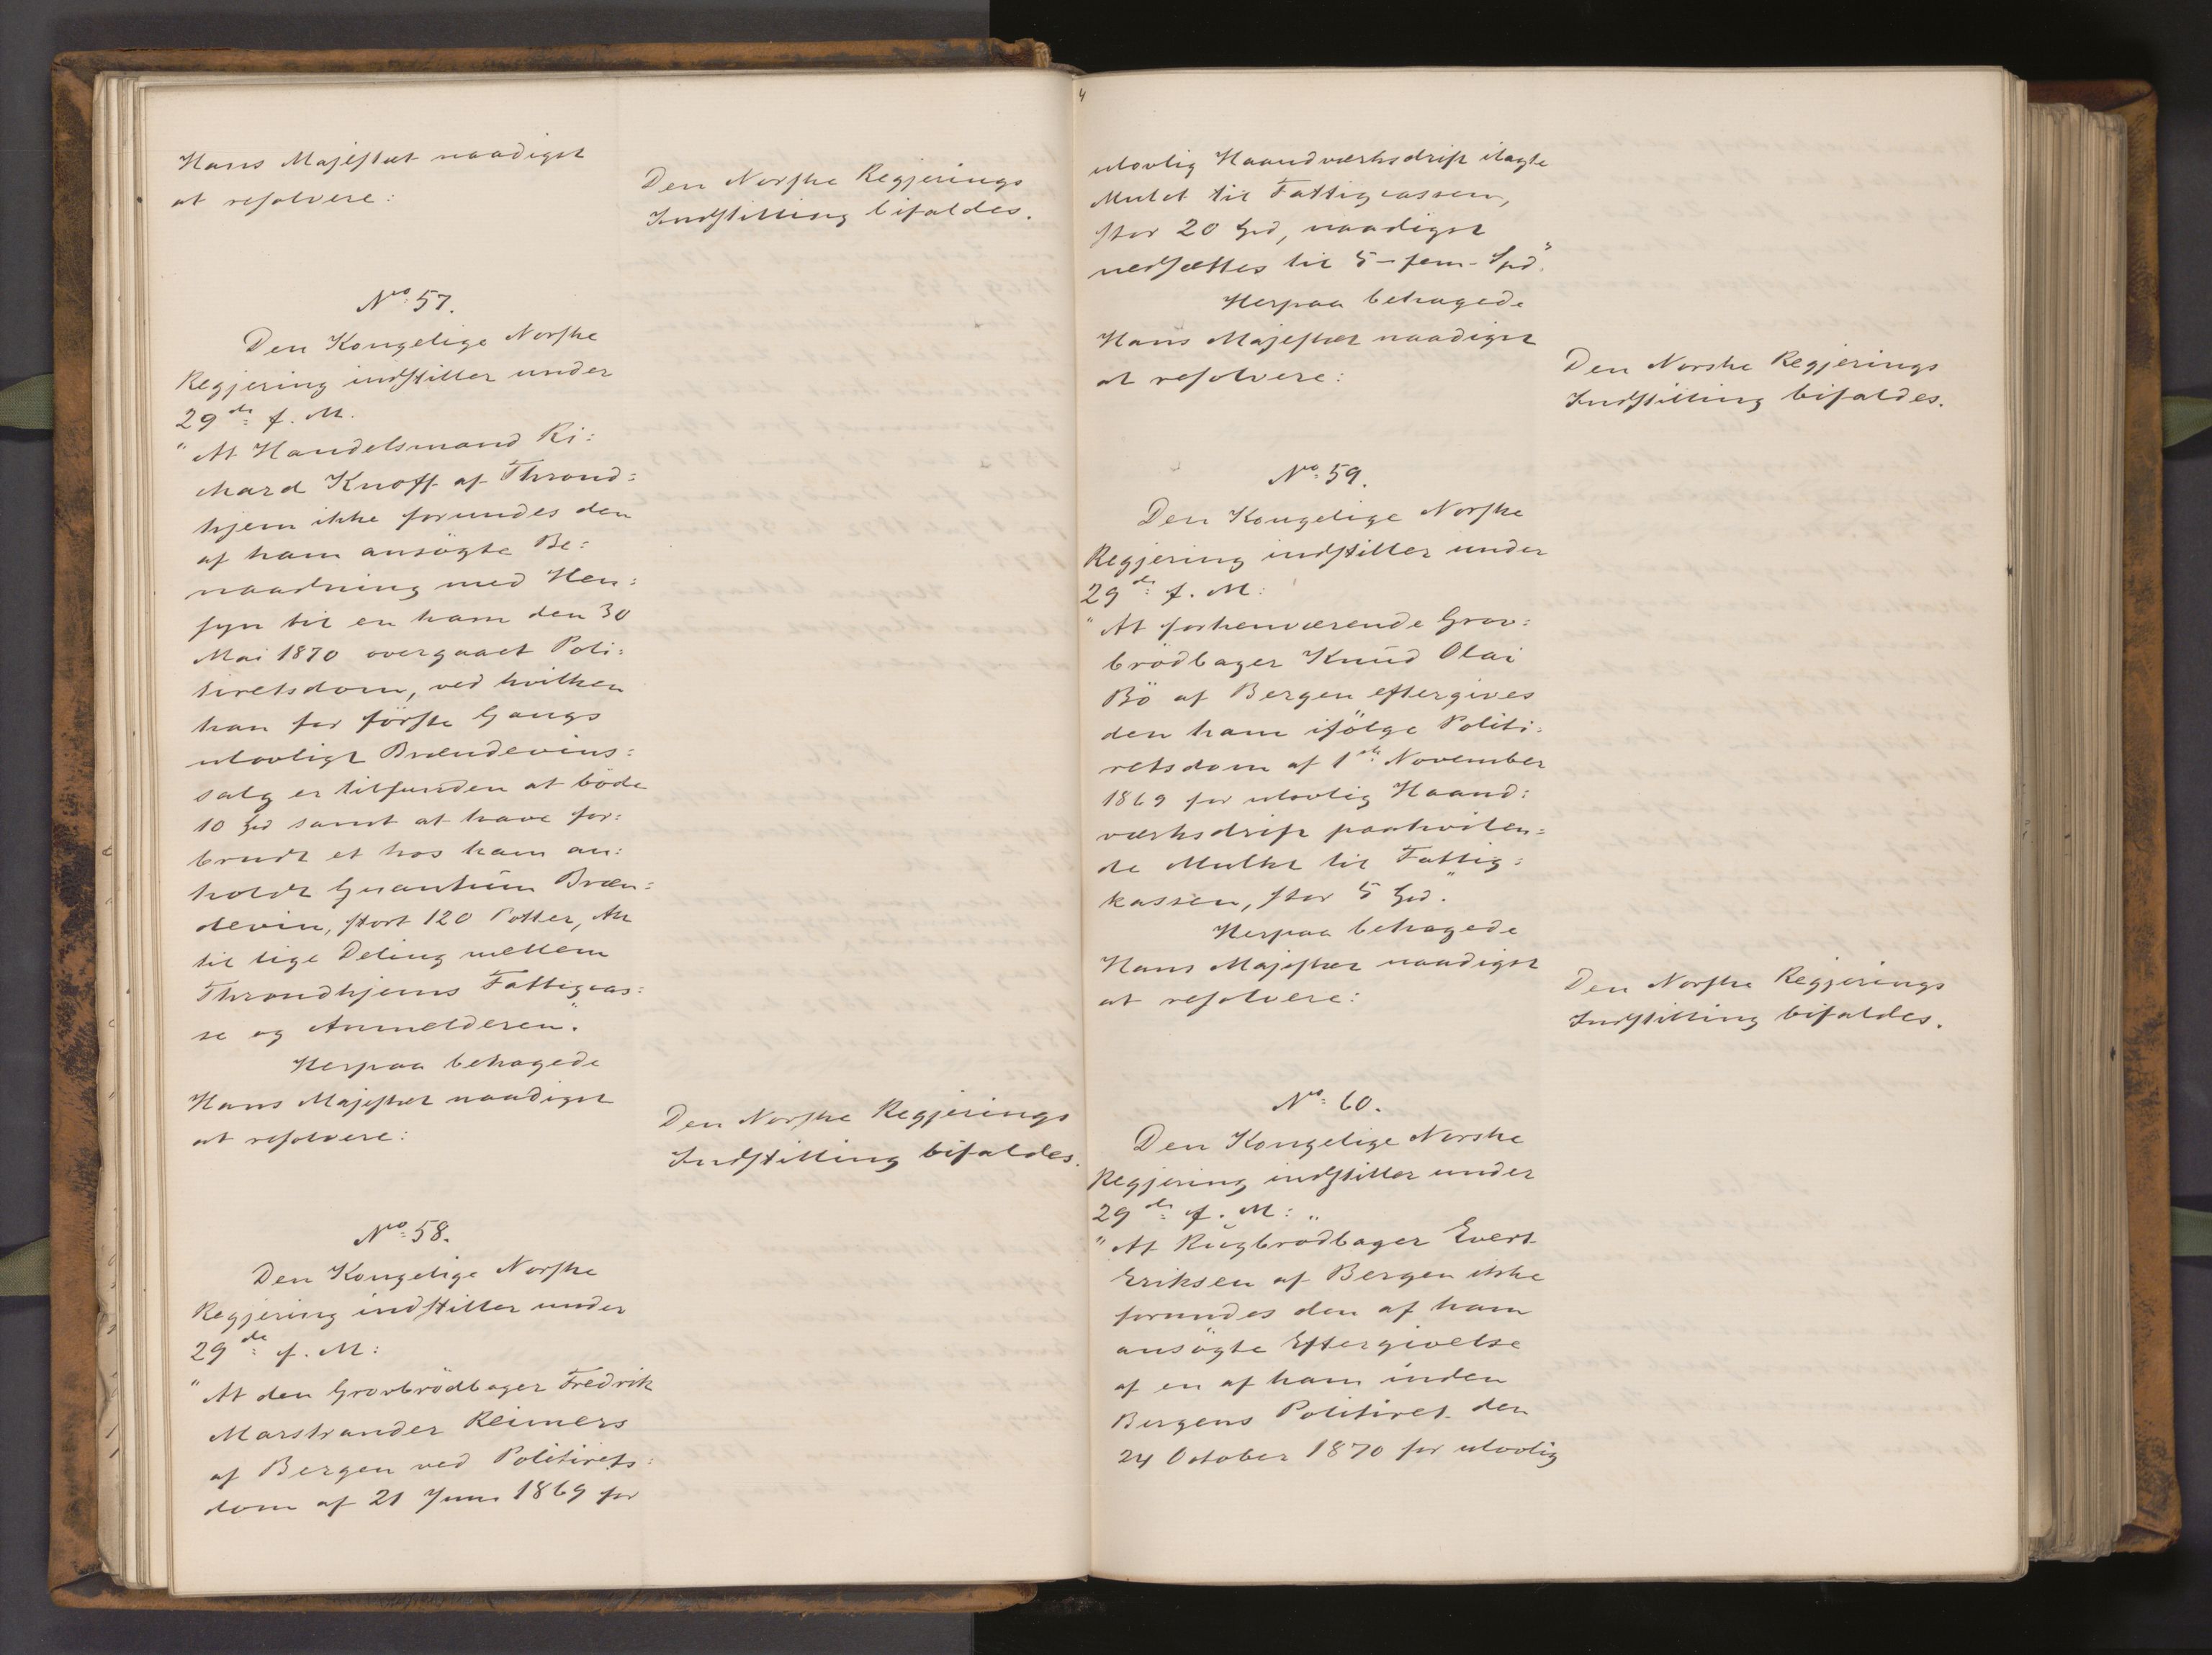 Hans Majestæt naadigst
at resolvere:
Den Norske Regjerings
Indstilling bifaldes.
No. 57.
Den Kongelige Norske
Regjering indstiller under
29de f. M.
"At Handelsmand Ri:
chard Knoff af Thrond:
hjem ikke forundes den
af ham ansögte Be:
naadning med Hen:
syn til en ham den 30
Mai 1870 overgaaet Poli:
tiretsdom, ved hvilken
han for förste Gangs
ulovligt Brændevins:
salg er tilfunden at böde
10 Spd samt at have for:
brudt et hos ham an:
holdt Quantum Bræn:
devin, stort 120 Potter, Alt
til lige Deling mellem
Throndhjems Fattigcas:
se og Anmelderen".
Herpaa behagede
Hans Majestæt naadigst
at resolvere:
Den Norske Regjerings
Indstilling bifaldes.
No. 58.
Den Kongelige Norske
Regjering indstiller under
29de f. M:
"At den Grovbrödbager Fredrik
Marstrander Reimers
af Bergen ved Politirets:
dom af 21 Juni 1869 for
4
ulovlig Haandværksdrift ilagte
Mulct til Fattigcassen,
stor 20 Spd, naadigst
nedsættes til 5 - fem - Spd".
Herpaa behagede
Hans Majestæt naadigst
at resolvere:
Den Norske Regjerings
Indstilling bifaldes.
No. 59.
Den Kongelige Norske
Regjering indstiller under
29de f. M:
"At forhenværende Grov:
brödbager Knud Olai
Bö af Bergen eftergives
den ham ifölge Politi:
retsdom af 1ste November
1869 for ulovlig Haand:
værksdrift paahvilen:
de Mulkt til Fattig:
kassen, stor 5 Spd".
Herpaa behagede
Hans Majestæt naadigst
at resolvere:
Den Norske Regjerings
Indstilling bifaldes.
No. 60.
Den Kongelige Norske
Regjering indstiller under
29de f. M:
"At Rugbrödbager Evert
Eriksen af Bergen ikke
forundes den af ham
ansögte Eftergivelse
af en af ham inden
Bergens Politiret den
24 October 1870 for ulovlig